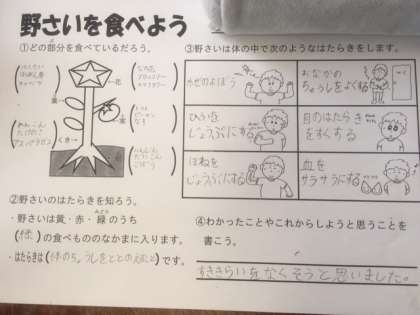 野さいを食べよう
①どの部分を食べているだろう。
花
葉
実
くき
なのは
ブロッコリー
カリフラワー
トマト
ピーマン
なす
れんこん
たけのこ
アスパラガス
にんじん
だいこん
ごぼう
②野さいのはたらきを知ろう。
・野さいは黄・赤・緑のうち
みどり
(緑)の食べもののなかまに入ります。
・はたらきは(体のちょうしをととのえる)です。
③野さいは体の中で次のようなはたらきをします。
かぜのよぼう
おなかの
ちょうしをよくする
ひふを
じょうぶにする
目のはたらき
をよくする
ほねを
じょうぶにする
血を
サラサラにする
④わかったことやこれからしようと思うことを
書こう。
すききらいをなくそうと思いました。